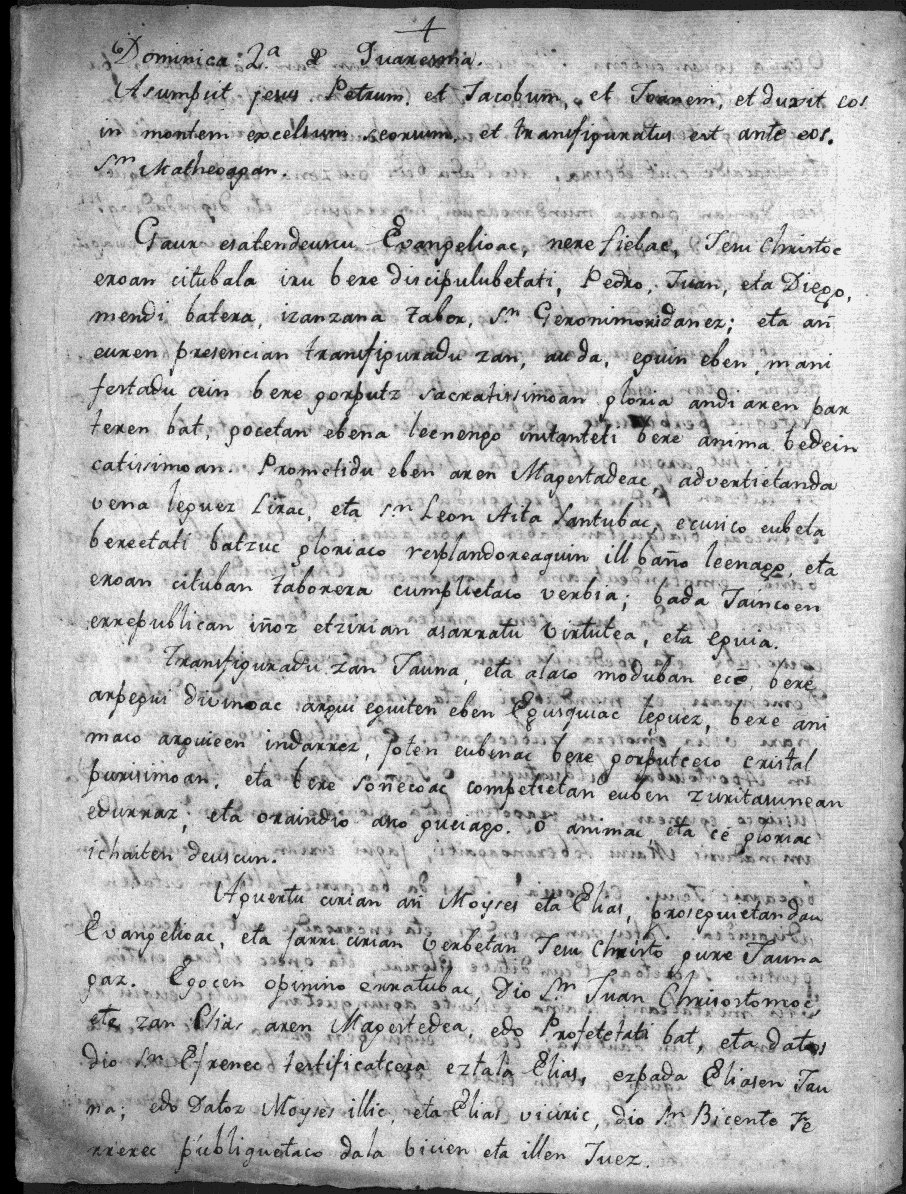 4
Dominica 2.a de Quaresma.
Asumpsit jesus Petrum, et Jacobum, et Joanem, et duxit eos
in montem excelsum seorsum, et transfiguratus est ante eos.
Sn Matheo
Gaur esatendeuscu Evangelioac, nere fielac, Jesu Christoc
eroan citubala iru bere discipulubetati, Pedro, Juan, eta Diego,
mendi batera, izanzana Tabor, Sn Geronimori danez; eta añ
euren presencian transfiguradu zan, au da, eguin eben, mani
festadu cein bere gorputz sacratissimoan gloria andi aren par
teren bat, gocetan ebena leenengo instanteti bere anima bedein
catissimoan. Prometidu eben aren Magestadeac, advertietanda
vena leguez Lirac, eta Sn Leon Aita Santubac, ecusico eubela
bereetati batzuc gloriaco resplandoreaguin ill baño leenago, eta
eroan cituban Taborera cumplietaco verbia; bada Jaincoen
errepublican iñoz etzirian asarratu virtutea, eta eguia.
Transfiguradu zan Jauna, eta alaco moduban ece, bere
arpegui divinoac argui eguiten eben Egusquiac leguez, bere ani
maco arguieen indarrez, soten eubenac bere gorputceco cristal
purisimoan. eta bere soñecoac competietan euben zuritasunean
edurraz, eta oraindio aso guciago. O animac eta cé gloriac
ichaiten deuscun.
Apuertu cirian añ Moyses eta Elias, proseguietandau
Evangelioac, eta sarri cirian verbetan Jesu Christo gure Jauna
gaz. Egocen opinino erratubac, dio Sn Juan Chrisostomoc,
ete zan Elias aren Magestedea, edo Profetetati bat, eta datos
dio Sn Efrenec testificatcera eztala Elias, ezpada Eliasen Jau
na; edo Datoz Moyses illic, eta Elias viciric, dio Sn Bicente Fe
rrerec publiquetaco dala bicien eta illen Juez.